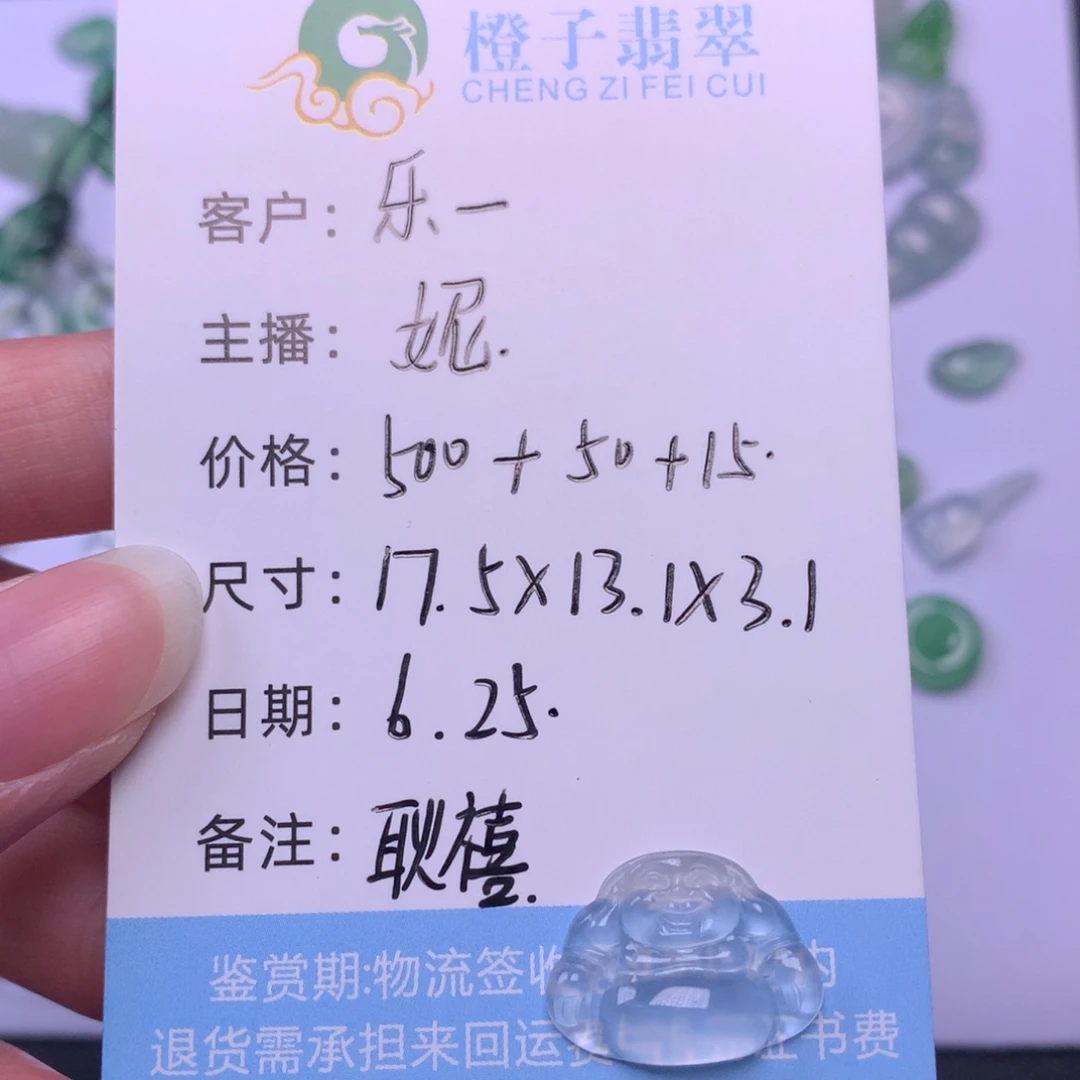 橙子翡翠
CHENG ZI FEI CUI
客户：乐一
主播：妮.
价格：500+50+15.
尺寸：17.5X13.1X3.1
日期：6.25.
备注：耿禧.
鉴赏期:物流签收 内
退货需承担来回运费 证书费